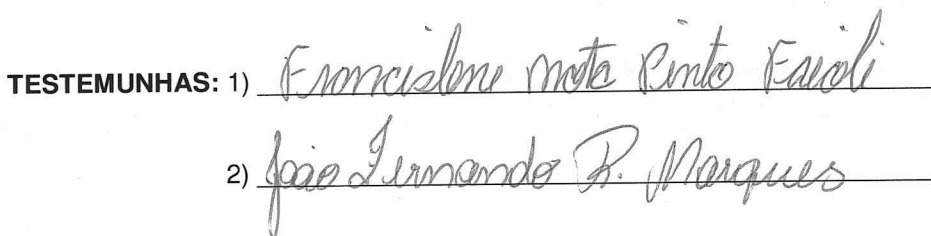 TESTEMUNHAS: 1) Francislene mota Pinto Faioli
2) João Fernando R. Marques